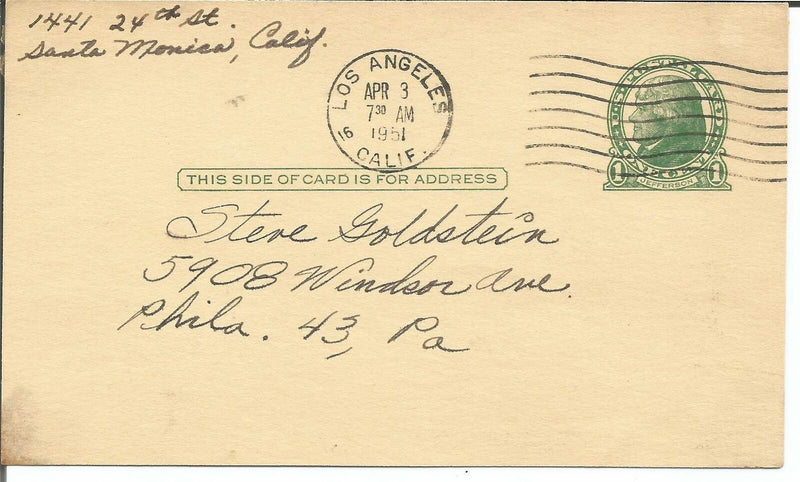 1441 24th St.
Santa Monica, Calif.
LOS ANGELES
APR 3
7 30 AM
1951
16
CALIF.
1 JEFFERSON 1
THIS SIDE OF CARD IS FOR ADDRESS
Steve Goldstein
5908 Windsor Ave.
Phila. 43, Pa